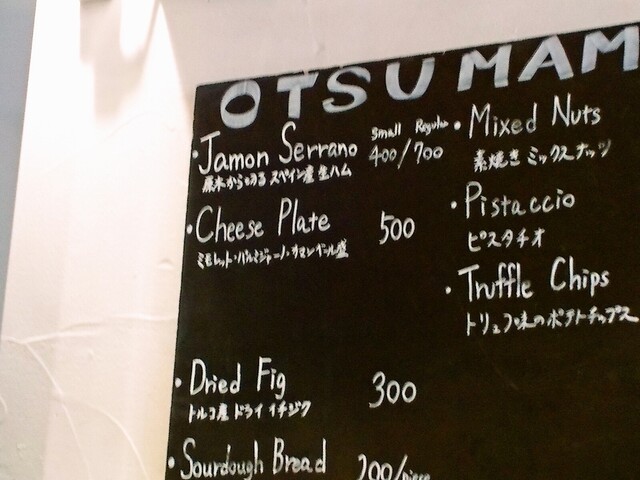 OTSUMAM
Jamon Serrano
Small Regular
400/700
原木から切る スペイン産 生ハム
Cheese Plate 500
ミモレット・パルミジャーノ・カマンベール盛
Dried Fig 300
トルコ産 ドライ イチジク
Sourdough Bread 200/piece
Mixed Nuts
素焼き ミックスナッツ
Pistaccio
ピスタチオ
Truffle Chips
トリュフ味のポテトチップス